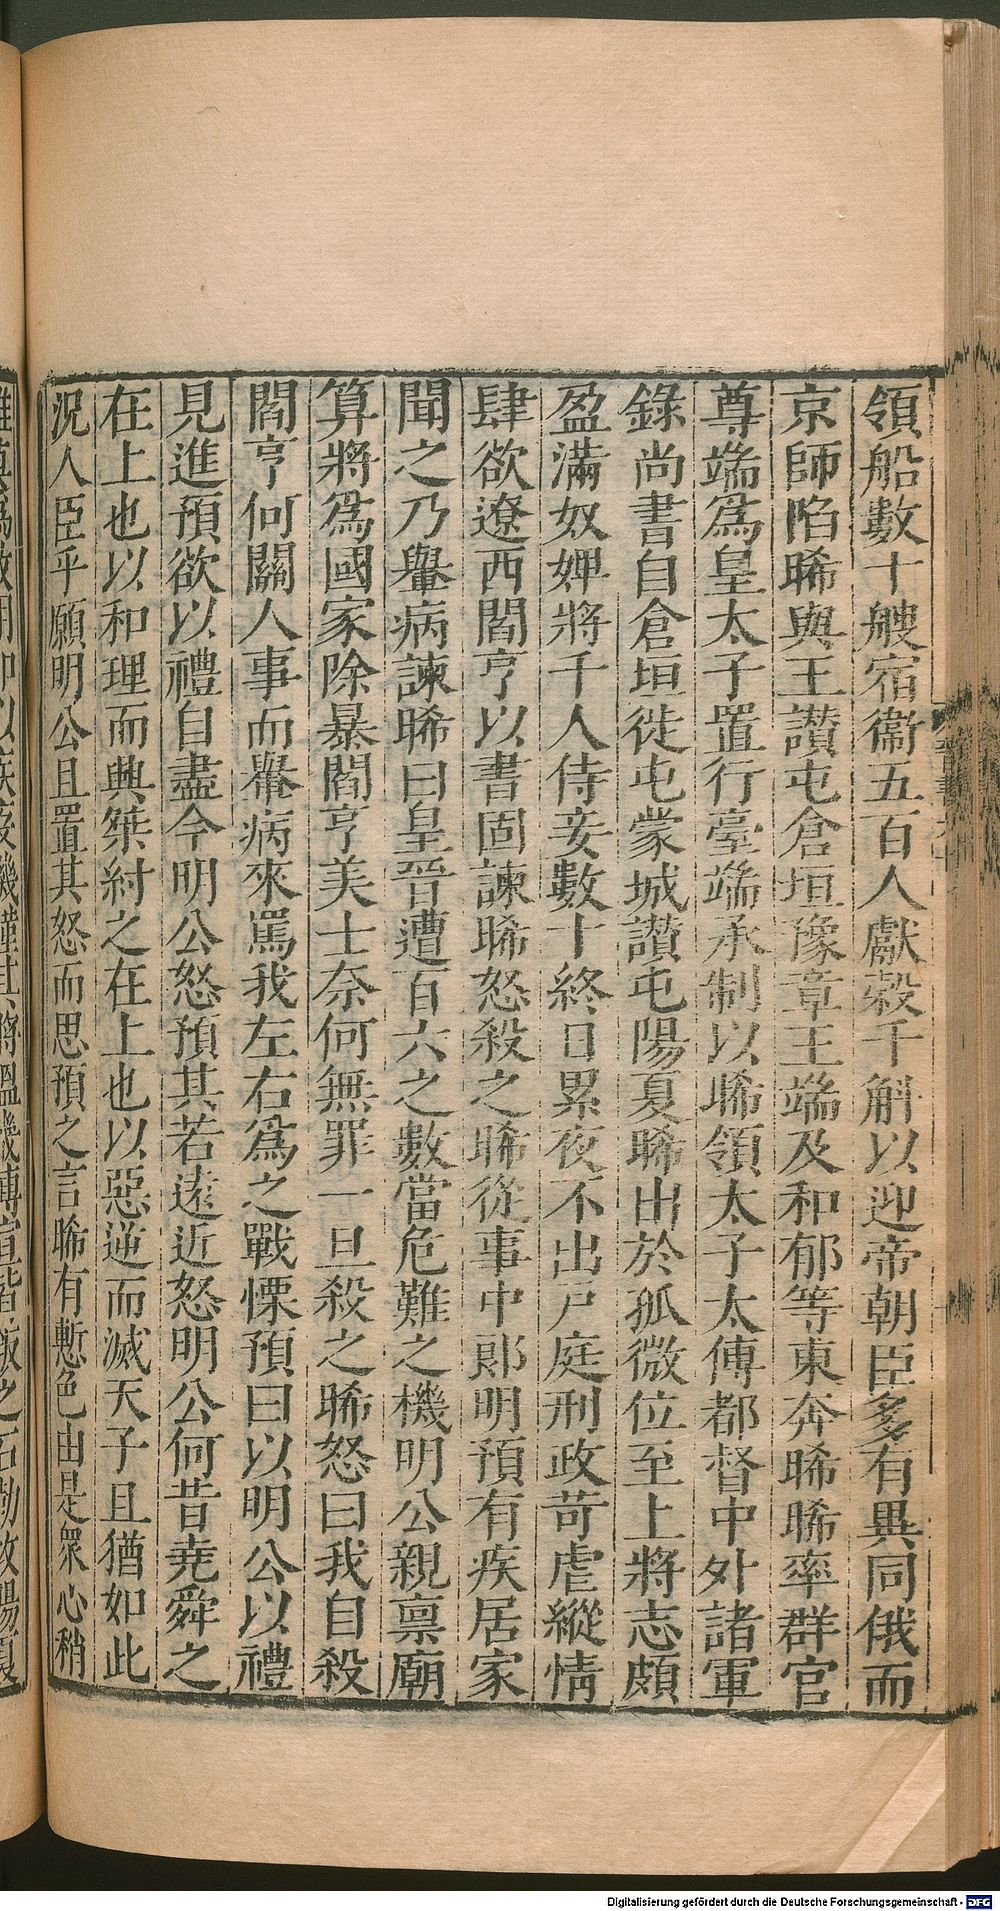 領船數十艘宿衞五百人獻穀千斛以迎帝朝臣多有異同俄而
京師陷晞與王讃屯倉垣豫章王端及和郁等東奔晞晞率群官
尊端爲皇太子置行臺端承制以晞領太子太傅都督中外諸軍
錄尚書自倉垣徙屯蒙城讃屯陽夏晞出於孤微位至上將志頗
盈滿奴婢將千人侍妾數十終日累夜不出戸庭刑政苛虐縱情
肆欲遼西閻亨以書固諫晞怒殺之晞從事中郎明預有疾居家
聞之乃轝病諫晞曰皇晉遭百六之數當危難之機明公親禀廟
算將爲國家除暴閻亨美士奈何無罪一旦殺之晞怒曰我自殺
閻亨何關人事而轝病來罵我左右爲之戰慄預曰以明公以禮
見進預欲以禮自盡今明公怒預其若遠近怒明公何昔堯舜之
在上也以和理而興桀紂之在上也以惡逆而滅天子且猶如此
況人臣乎願明公且置其怒而思預之言晞有慙色由是衆心稍
Digitalisierung gefördert durch die Deutsche Forschungsgemeinschaft - DFG